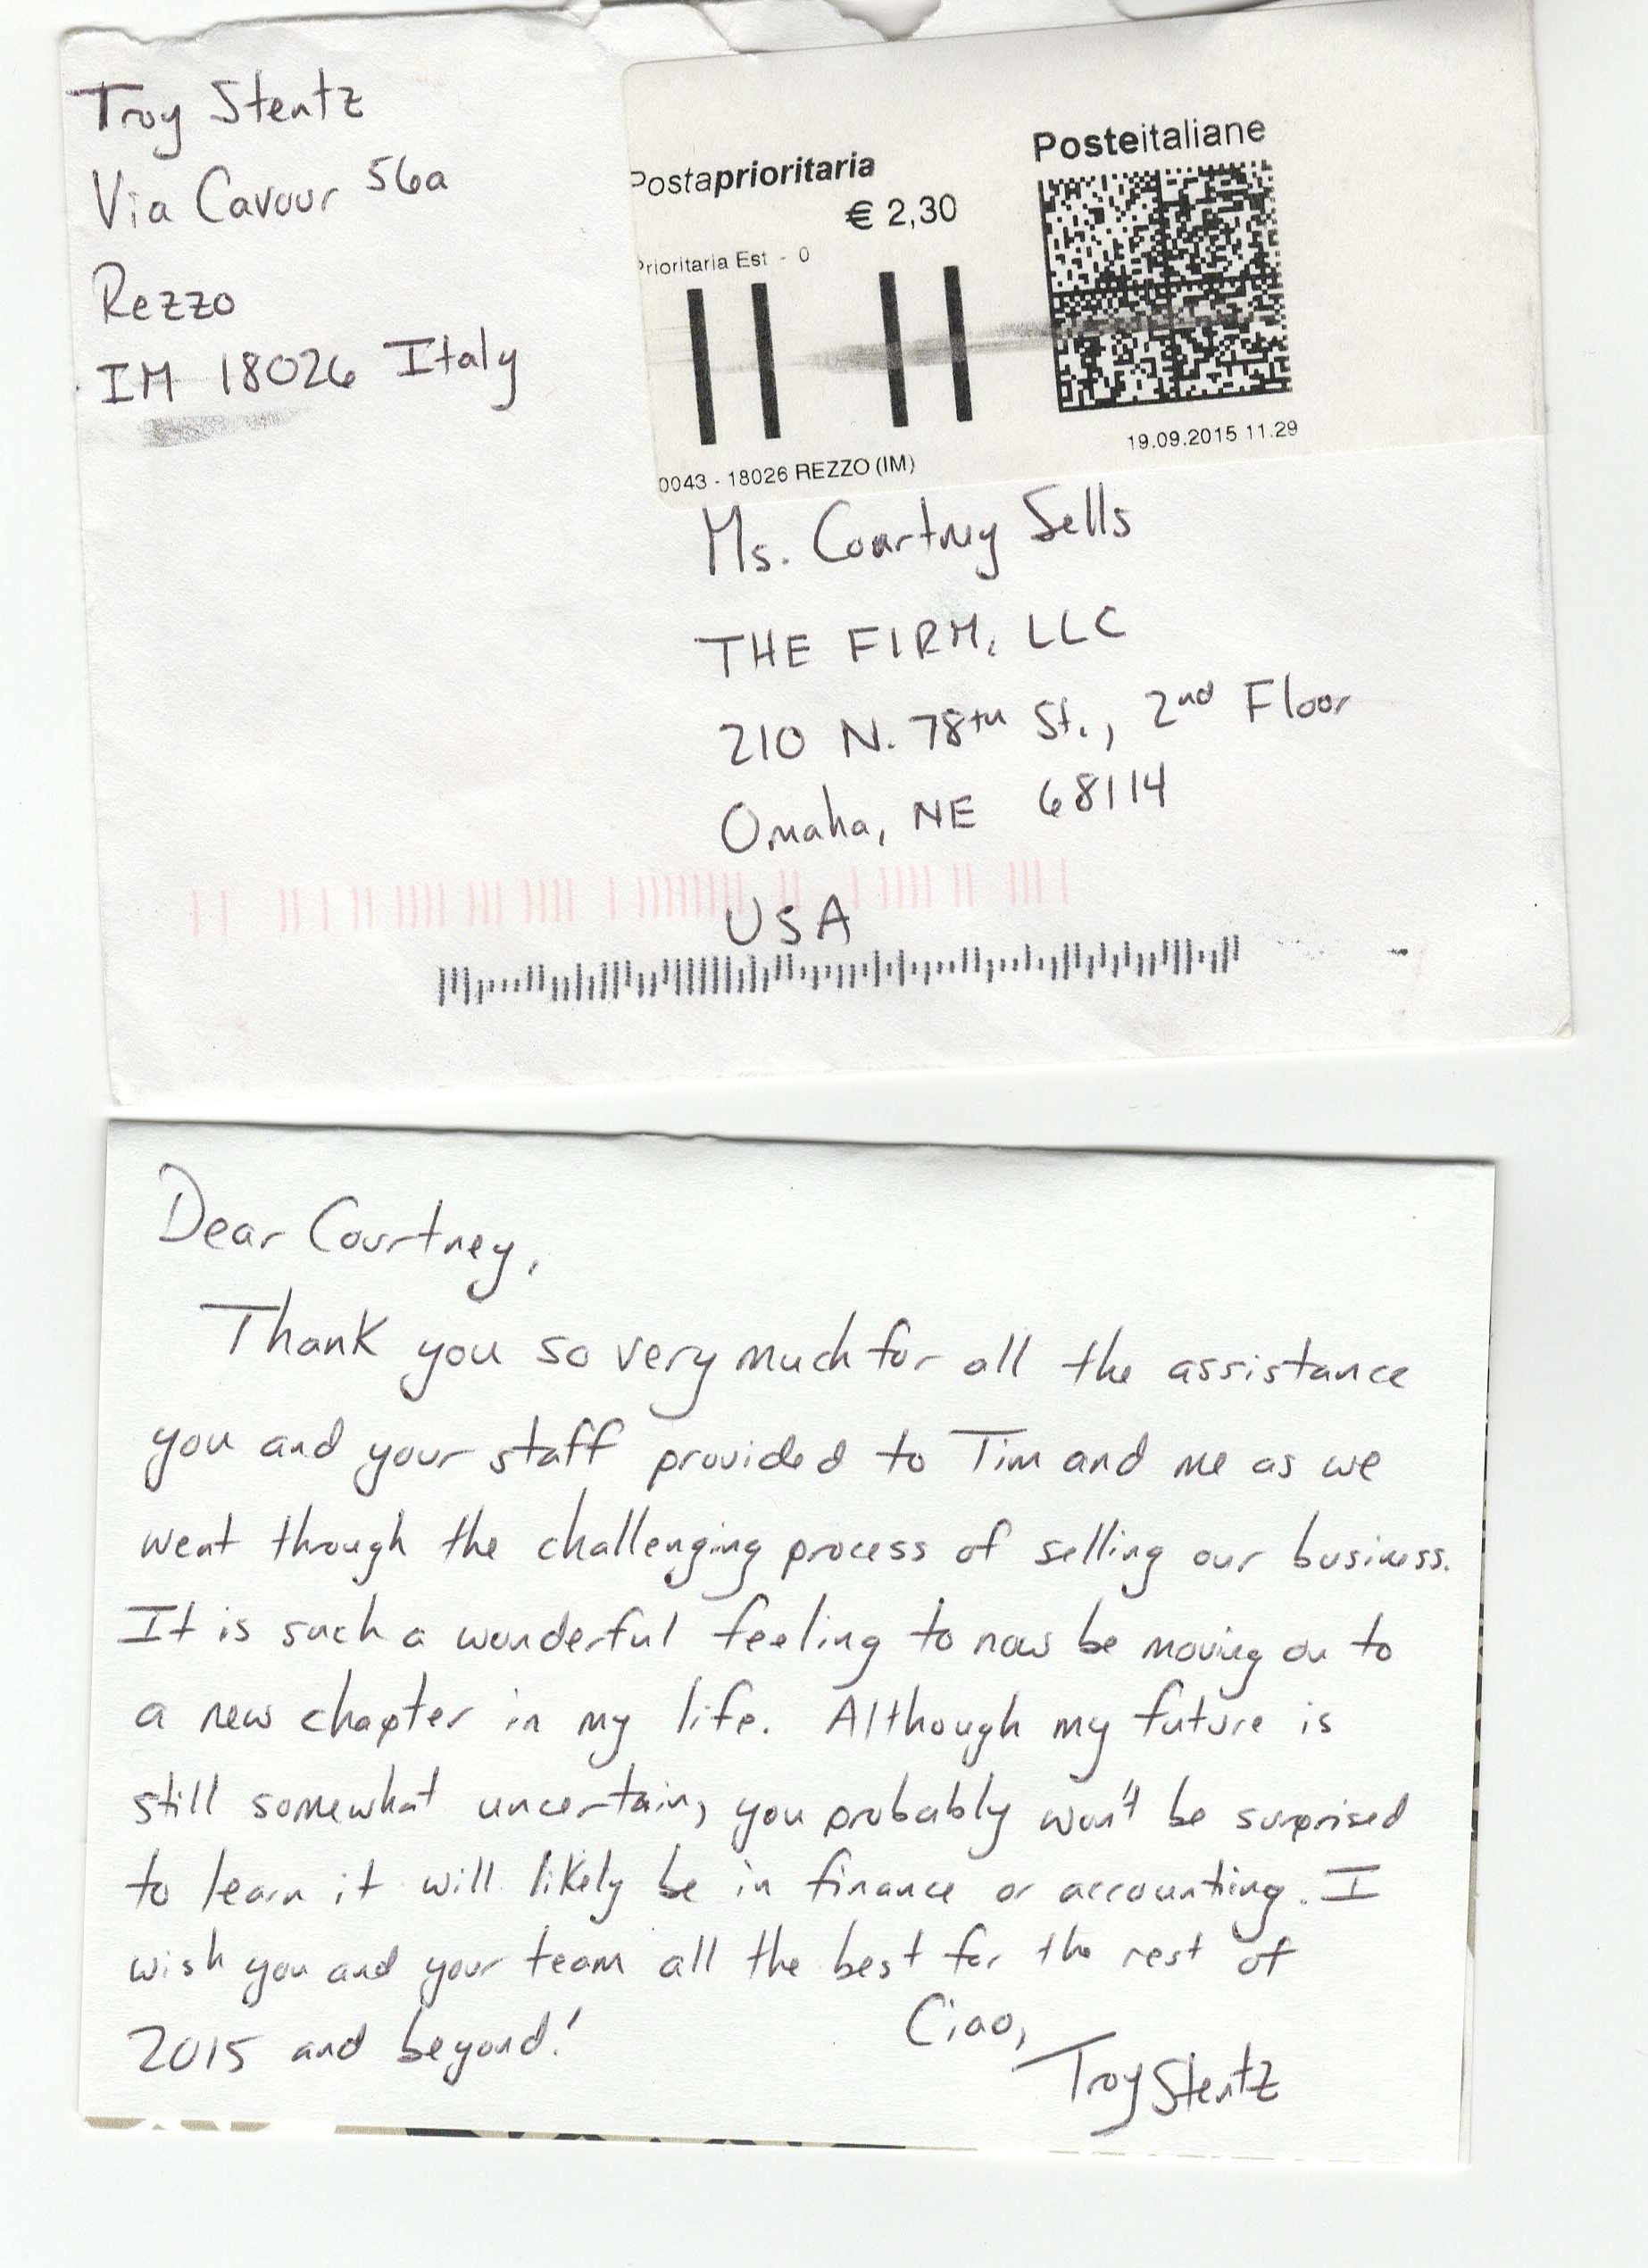 Troy Stentz
Via Cavour 56a
Rezzo
IM 18026 Italy
Postaprioritaria
€ 2,30
Prioritaria Est - 0
Posteitaliane
19.09.2015 11.29
0043 - 18026 REZZO (IM)
Ms. Courtney Sells
THE FIRM, LLC
210 N. 78th St., 2nd Floor
Omaha, NE 68114
USA
Dear Courtney,
Thank you so very much for all the assistance
you and your staff provided to Tim and me as we
went through the challenging process of selling our business.
It is such a wonderful feeling to now be moving on to
a new chapter in my life. Although my future is
still somewhat uncertain, you probably won't be surprised
to learn it will likely be in finance or accounting. I
wish you and your team all the best for the rest of
2015 and beyond!
Ciao,
Troy Stentz